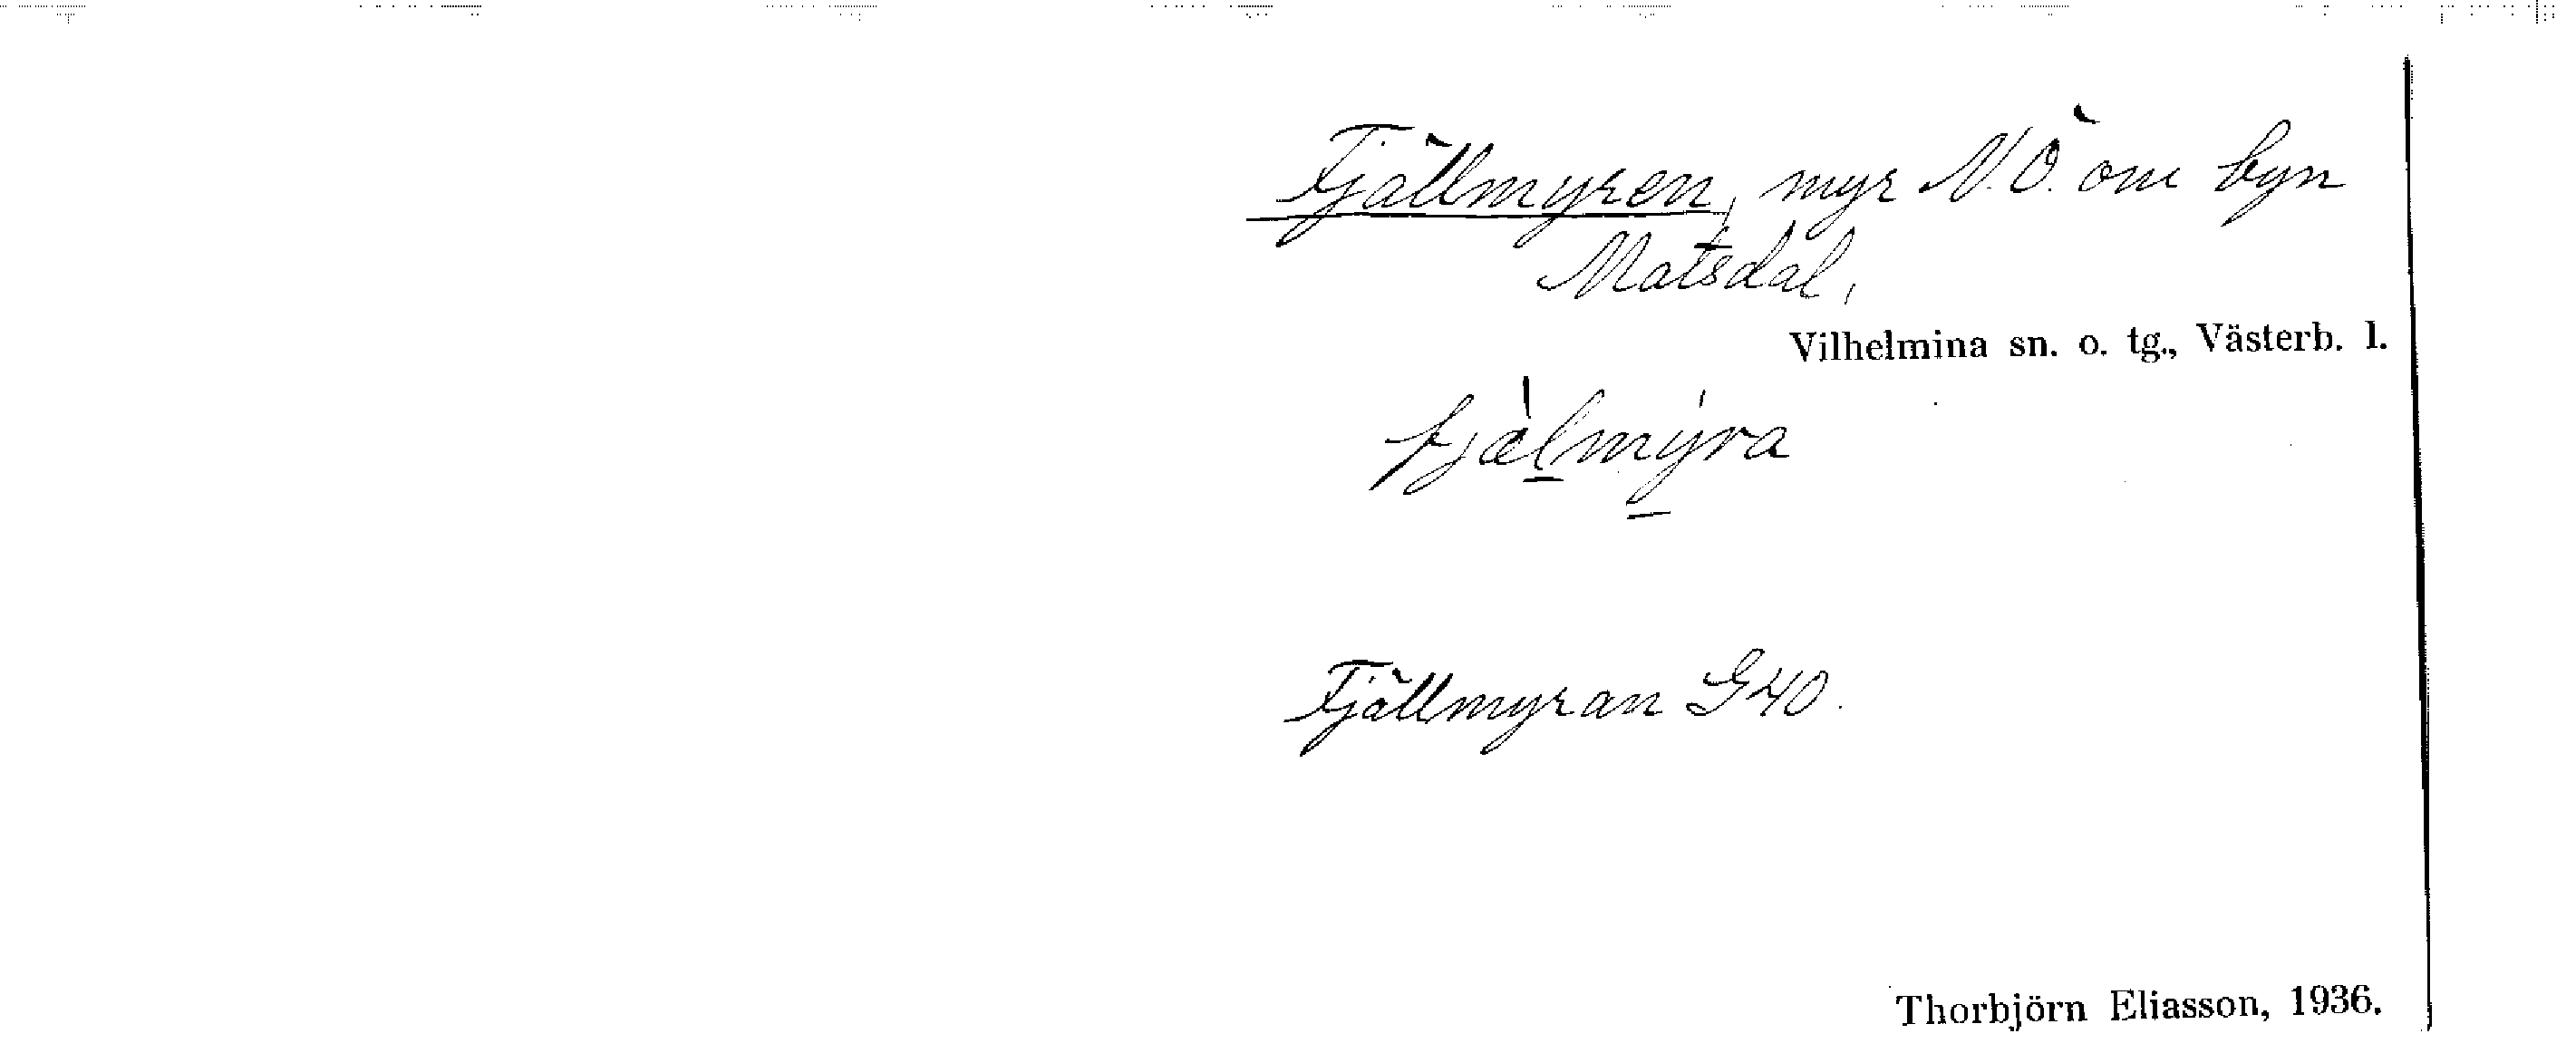 Fjällmyren, myr N.Ö. om byn
Matsdal,
Vilhelmina sn. o. tg., Västerb. l.
fjæ̀lmýra
Fjällmyran G40.
Thorbjörn Eliasson, 1936.